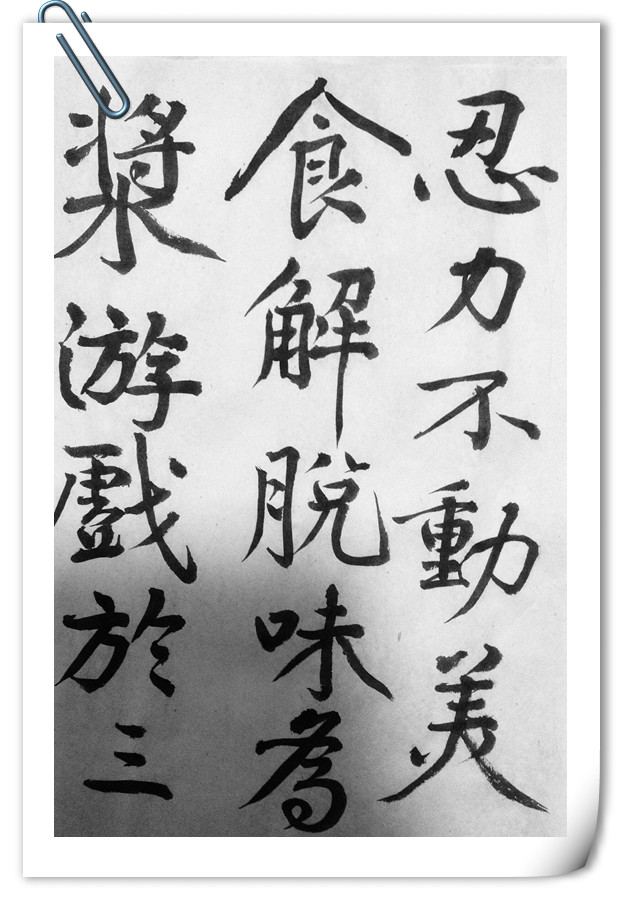 忍力不動美
食解脫味為
漿游戲於三